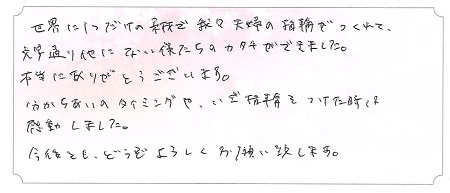 世界に1つだけの素材で我々夫婦の指輪がつくれて、
文字通り他にない僕たちのカタチができました。
本当にありがとうございます。
分からあいのタイミングや、いざ指輪をつけた時は
感動しました。
今後とも、どうぞよろしくお願い致します。